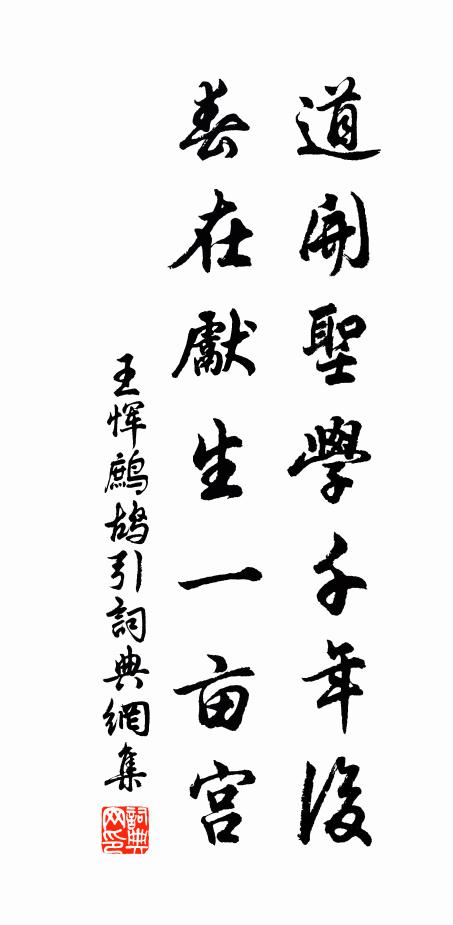 道開聖學千年後
春在獻生一亩宫
王惲鷓鴣引詞典網集
詞典网印